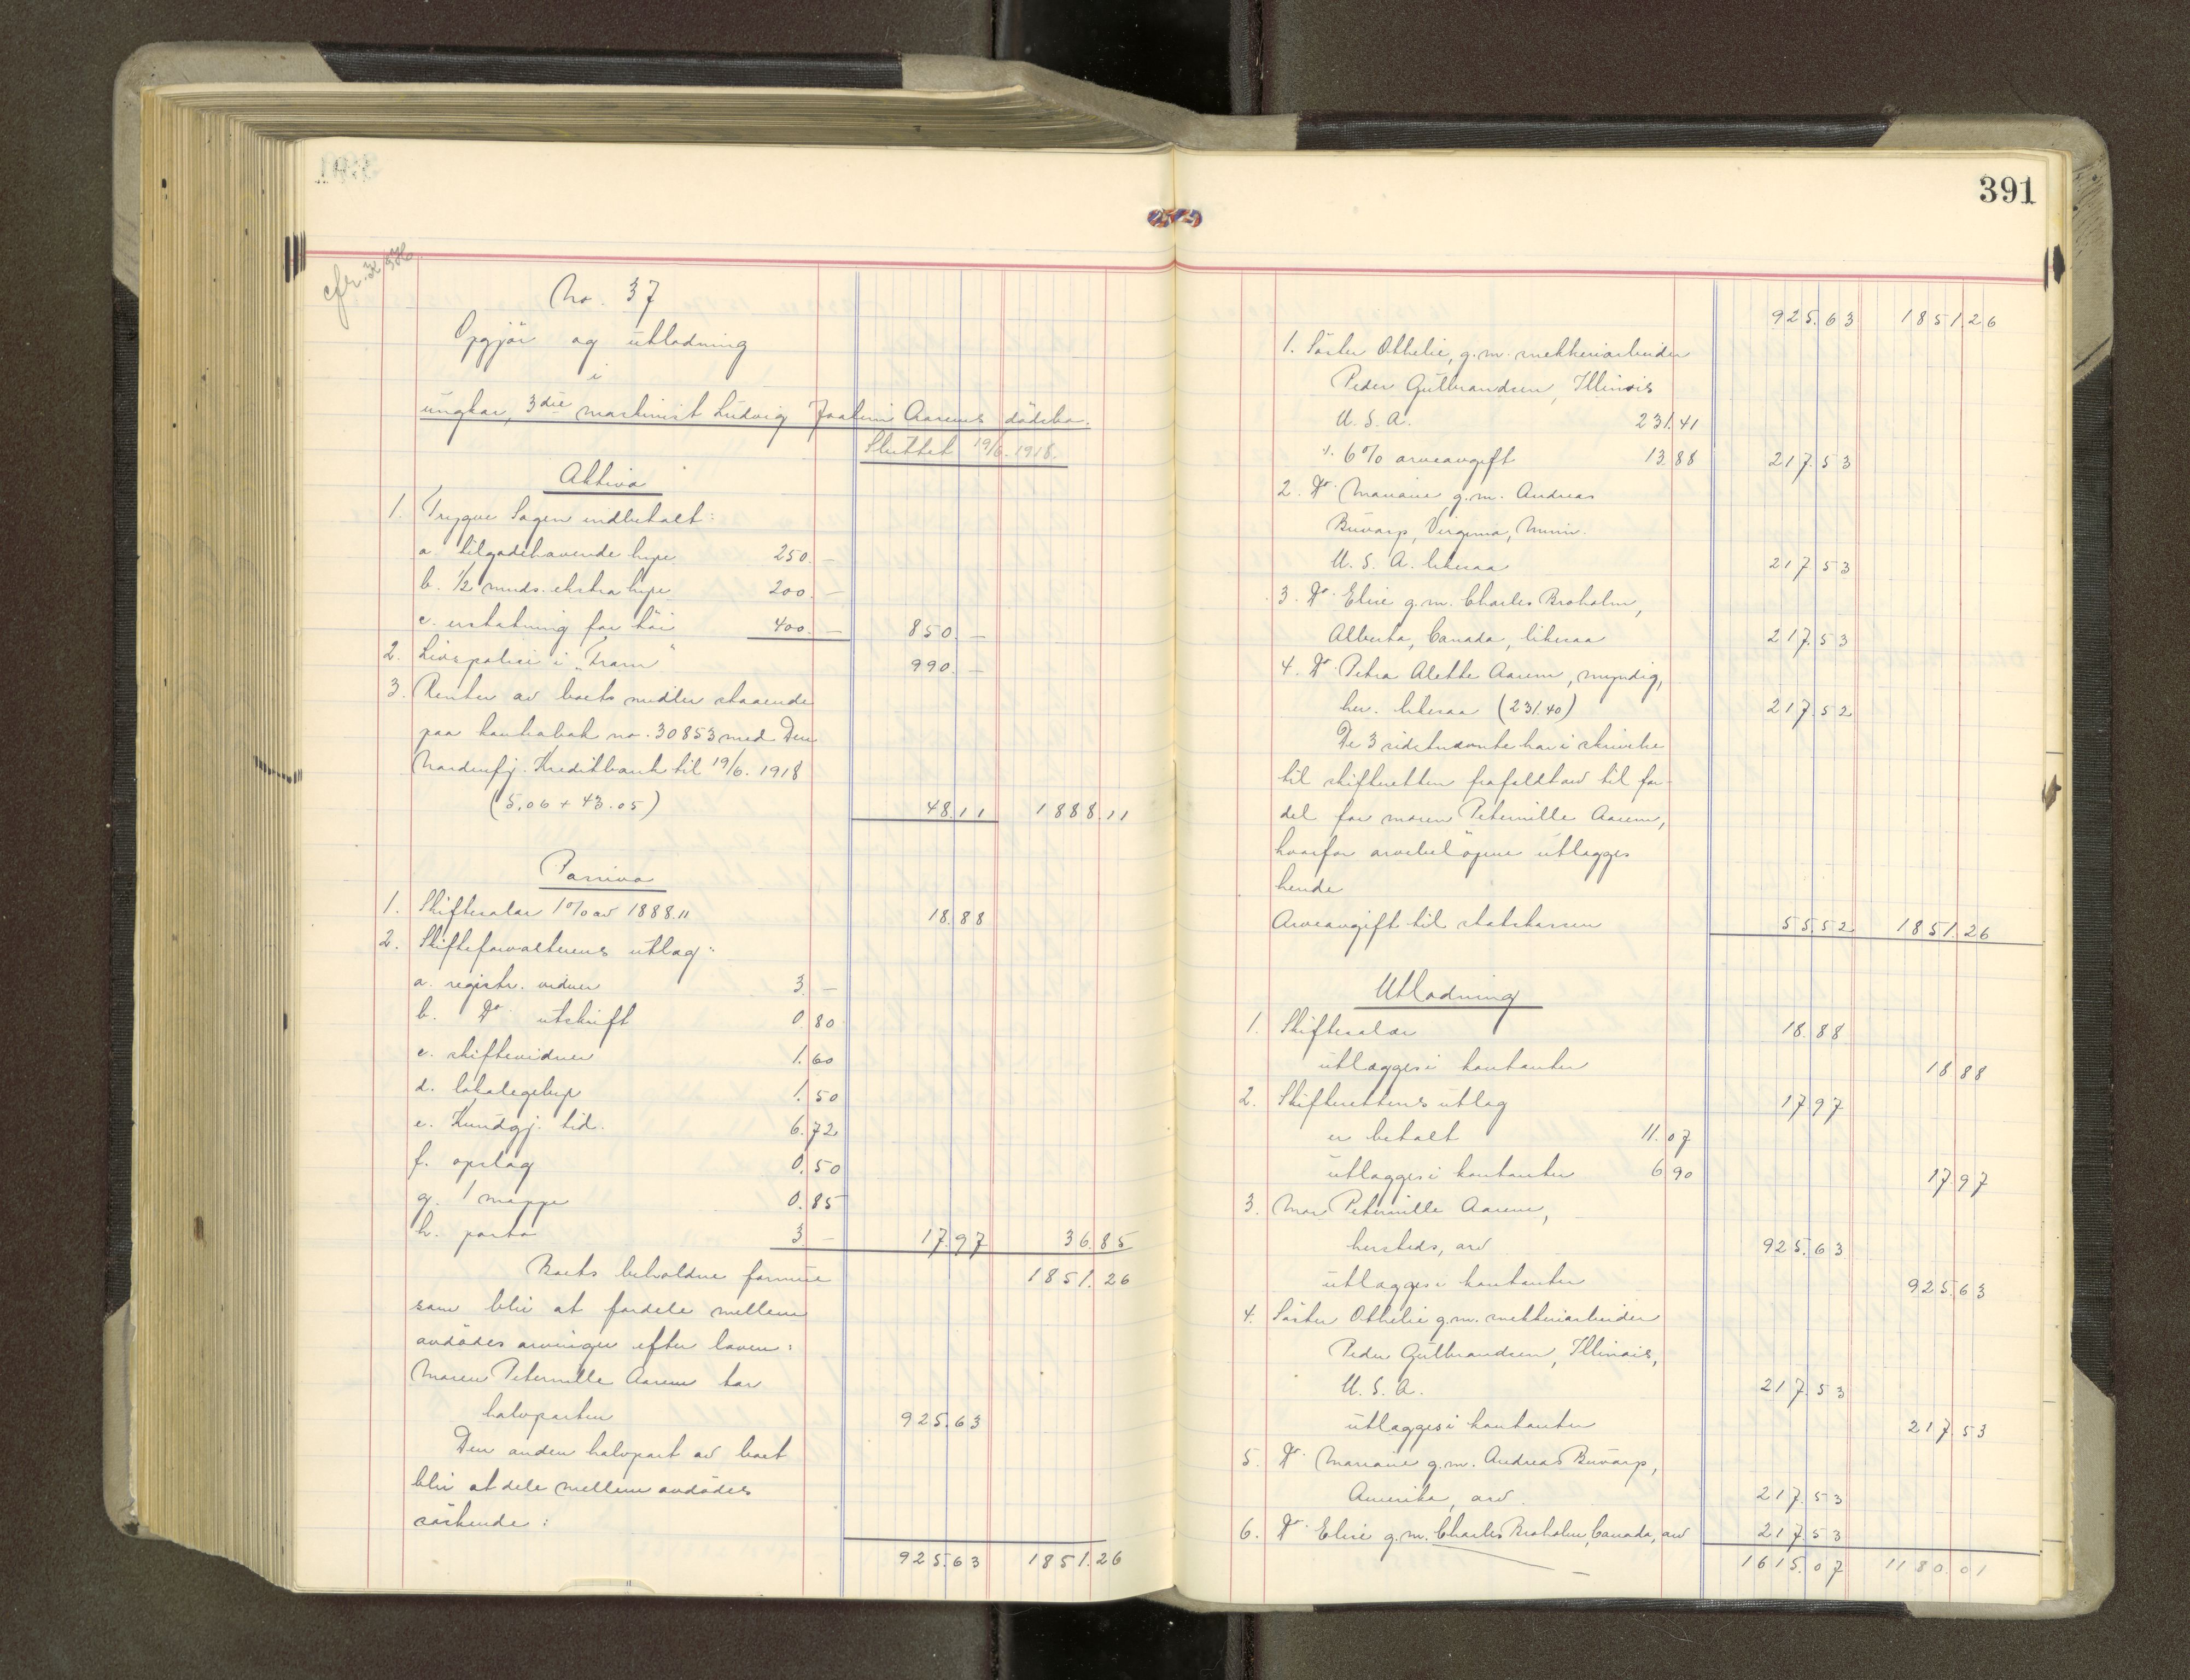 cfr.
No. 37
Opgjör og utlodning
i
ungkar, 3die maskinist Ludvig Joakim Aarems dödsbo.
Sluttet 19/6. 1918.
Aktiva
1. Trygve Sagen indbetalt:
a. tilgodehavende hyre 250. -
b. 1/2 mnds. ekstra hyre 200. -
c. erstatning for töi 400. - 850. -
2. Livspolice i "Fram" 990. -
3. Renter av boets midler staaende
paa bankbok no. 30853 med Den
Nordenfj. Kreditbank til 19/6. 1918
(5.06 + 43.05) 48.11 1888.11
Passiva
1. Skiftesalær 1% av 1888.11 18.88
2. Skifteforvalterens utlæg:
a. registr. vidner 3. -
b. Do utskrift 0.80
c. skiftevidner 1.60
d. lokalegebyr 1.50
e. Kundgj. tid. 6.72
f. opslag 0.50
g. 1 mappe 0.85
h. porto 3 - 17.97 36.85
Boets beholdne formue 1851.26
som blir at fordele mellem
avdödes arvinger efter loven:
Moren Peternille Aarem tar
halvparten 925.63
Den anden halvpart av boet
blir at dele mellem avdödes
söskende:
925.63 1851.26
391
925.63 1851.26
1. Söster Othelie, g.m. mekkeriarbeider
Peder Gulbrandsen, Illinois
U. S. A. 231.41
÷ 6% arveavgift 13.88 217.53
2. Do Mariane g.m. Andreas
Buvarp, Virginia, Minn.
U. S. A. likesaa 217.53
3. Do Elise g.m. Charles Broholm,
Alberta, Canada, likesaa 217.53
4. Do Petra Alette Aarem, myndig,
her. likesaa (231.40) 217.52
De 3 sidstnævnte har i skrivelse
til skifteretten frafaldt arv til for-
del for moren Peternille Aarem,
hvorfor arvebelöpene utlægges
hende
Arveavgift til statskassen 55.52 1851.26
Utlodning
1. Skiftesalær 18.88
utlægges i kontanter 18.88
2. Skifterettens utlæg 17.97
er betalt 11.07
utlægges i kontanter 6.90 17.97
3. Mor Peternille Aarem,
hersteds, arv 925.63
utlægges i kontanter 925.63
4. Söster Othelie g.m. mekkeriarbeider
Peder Gulbrandsen, Illinois,
U. S. A. 217.53
utlægges i kontanter 217.53
5. Do Mariane g.m. Andreas Buvarp,
Amerika, arv. 217.53
6. Do Elise g.m. Charles Broholm, Canada, arv 217.53
1615.07 1180.01